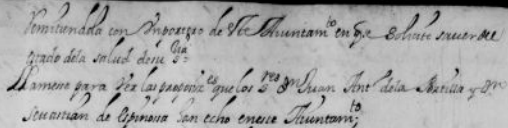 Remitiendola con Un porttero de este Ayuntam.to en q.e se solicite saver de el
estado dela salud de su S.ria
Llamese para Ver las proposiz.es que los s.res D.n Juan Ant.o dela Matilla y D.n
Sevastian de Espinosa han echo en este Ayuntam.to